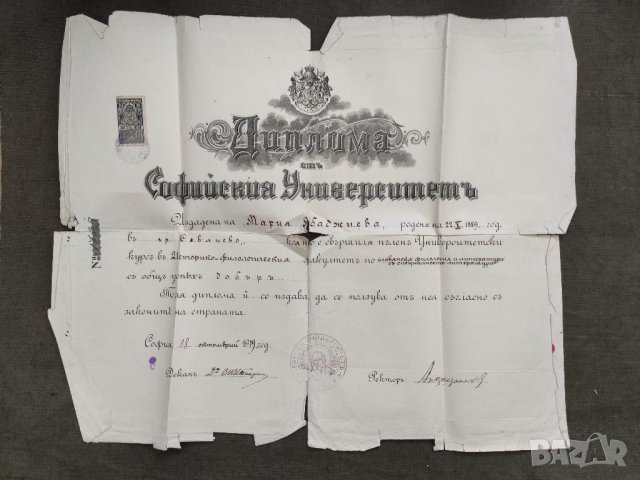 Диплома
отъ
Софийския Университетъ
Издадена на Мария Абаджиева, родена на 22 X 1889 год.
въ гр. Севлиево, която е свършила пъленъ Университетски
курсъ въ Историко-филологическия факултетъ по славянска филология и литература
съ общъ успѣхъ добъръ
Тая диплома ѝ се издава, да се ползува отъ нея съгласно съ
законитѣ на страната.
София, 18 октомврий 1919 год.
Деканъ: Ректоръ:
BAZAR
bg